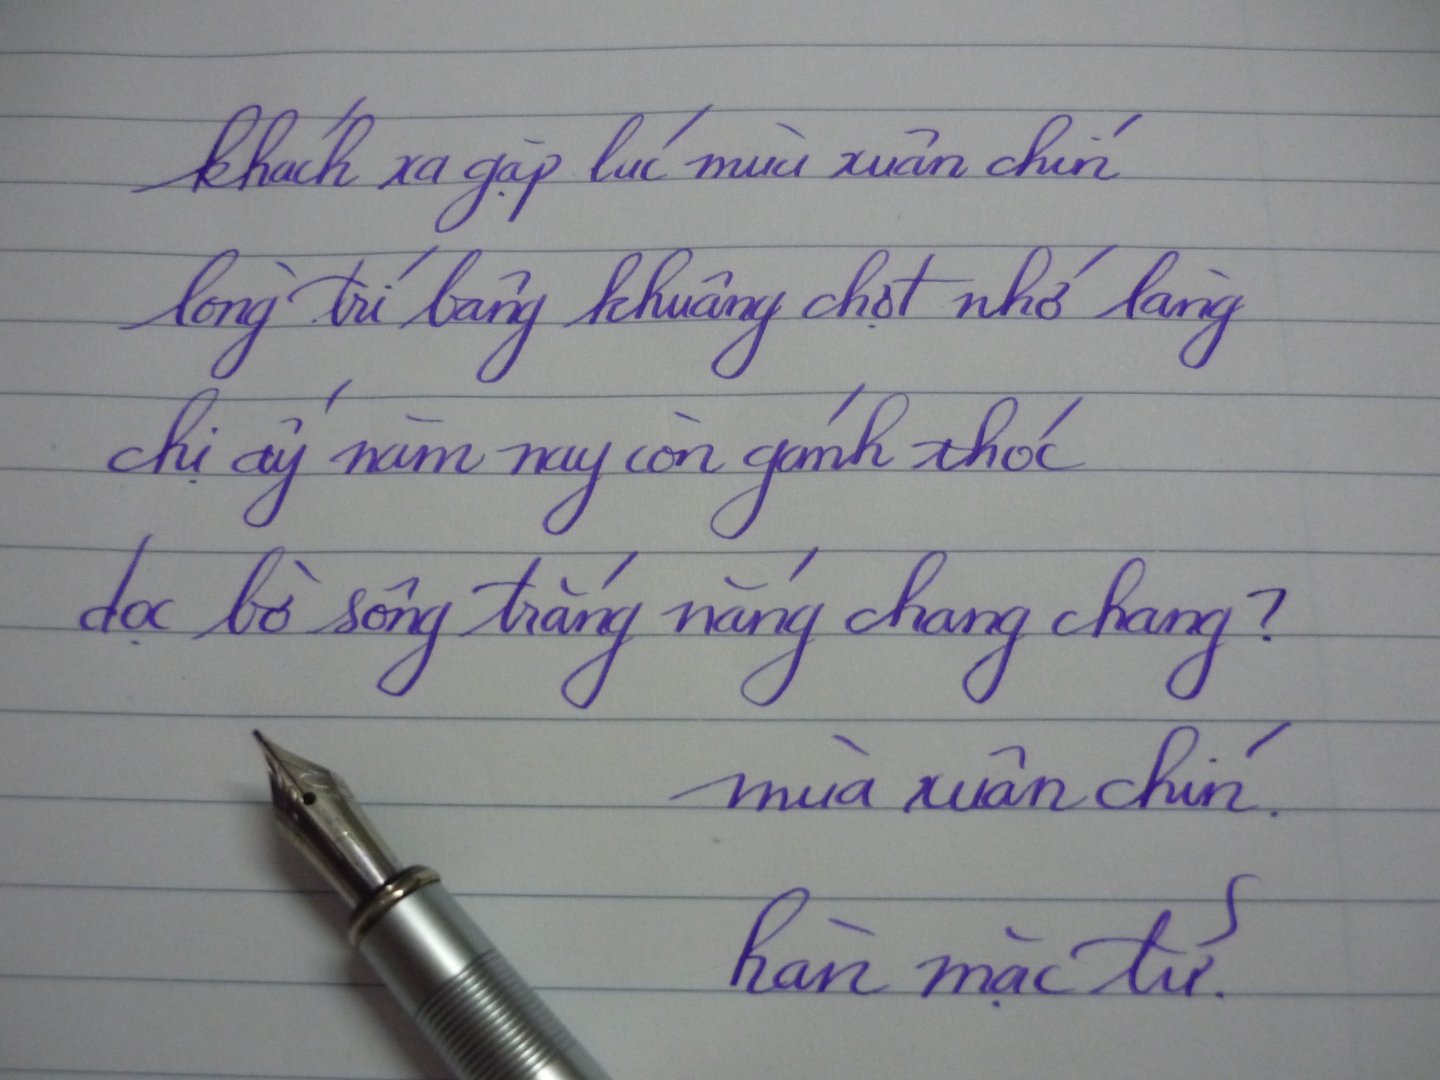 khách xa gặp lúc mùa xuân chín
lòng trí bâng khuâng chợt nhớ làng
chị ấy năm nay còn gánh thóc
dọc bờ sông trắng nắng chang chang?
mùa xuân chín.
hàn mặc tử.